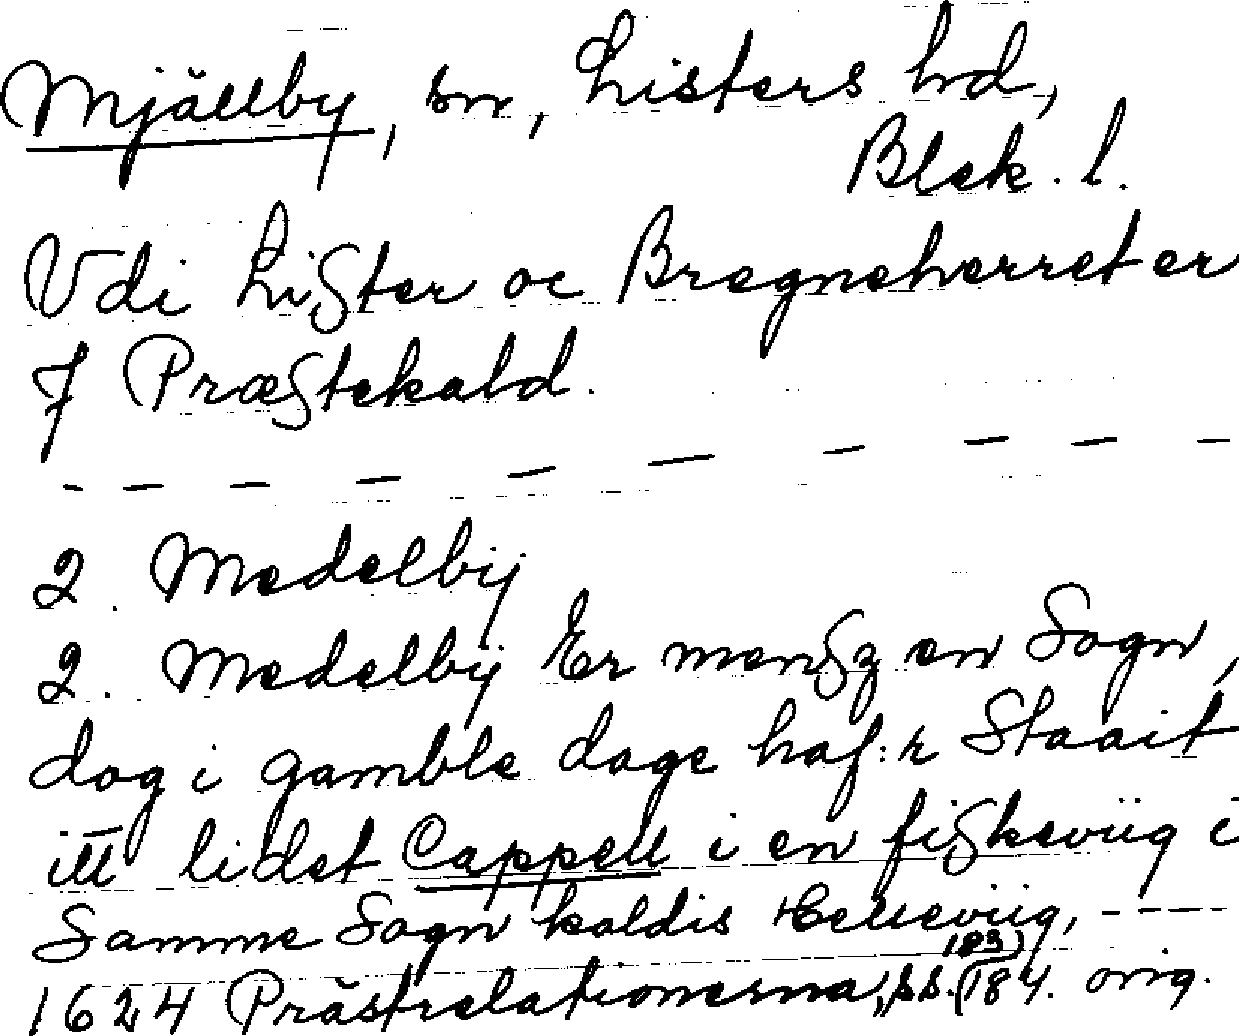 Mjällby, sn, Listers hd,
Blek. l.
Vdi Lister oc Bregneherret er
7 Præstekald.
— — — — — — — — —
2. Medelbÿ
2. Medelbÿ Er mensz en Sogn,
dog i gamble dage haf:r Staait
itt lidet Cappell i en fiskeviig i
Samme Sogn kaldis Helleviig, - - - -
(183)
1624 Prästrelationerna, ss. (184. orig.